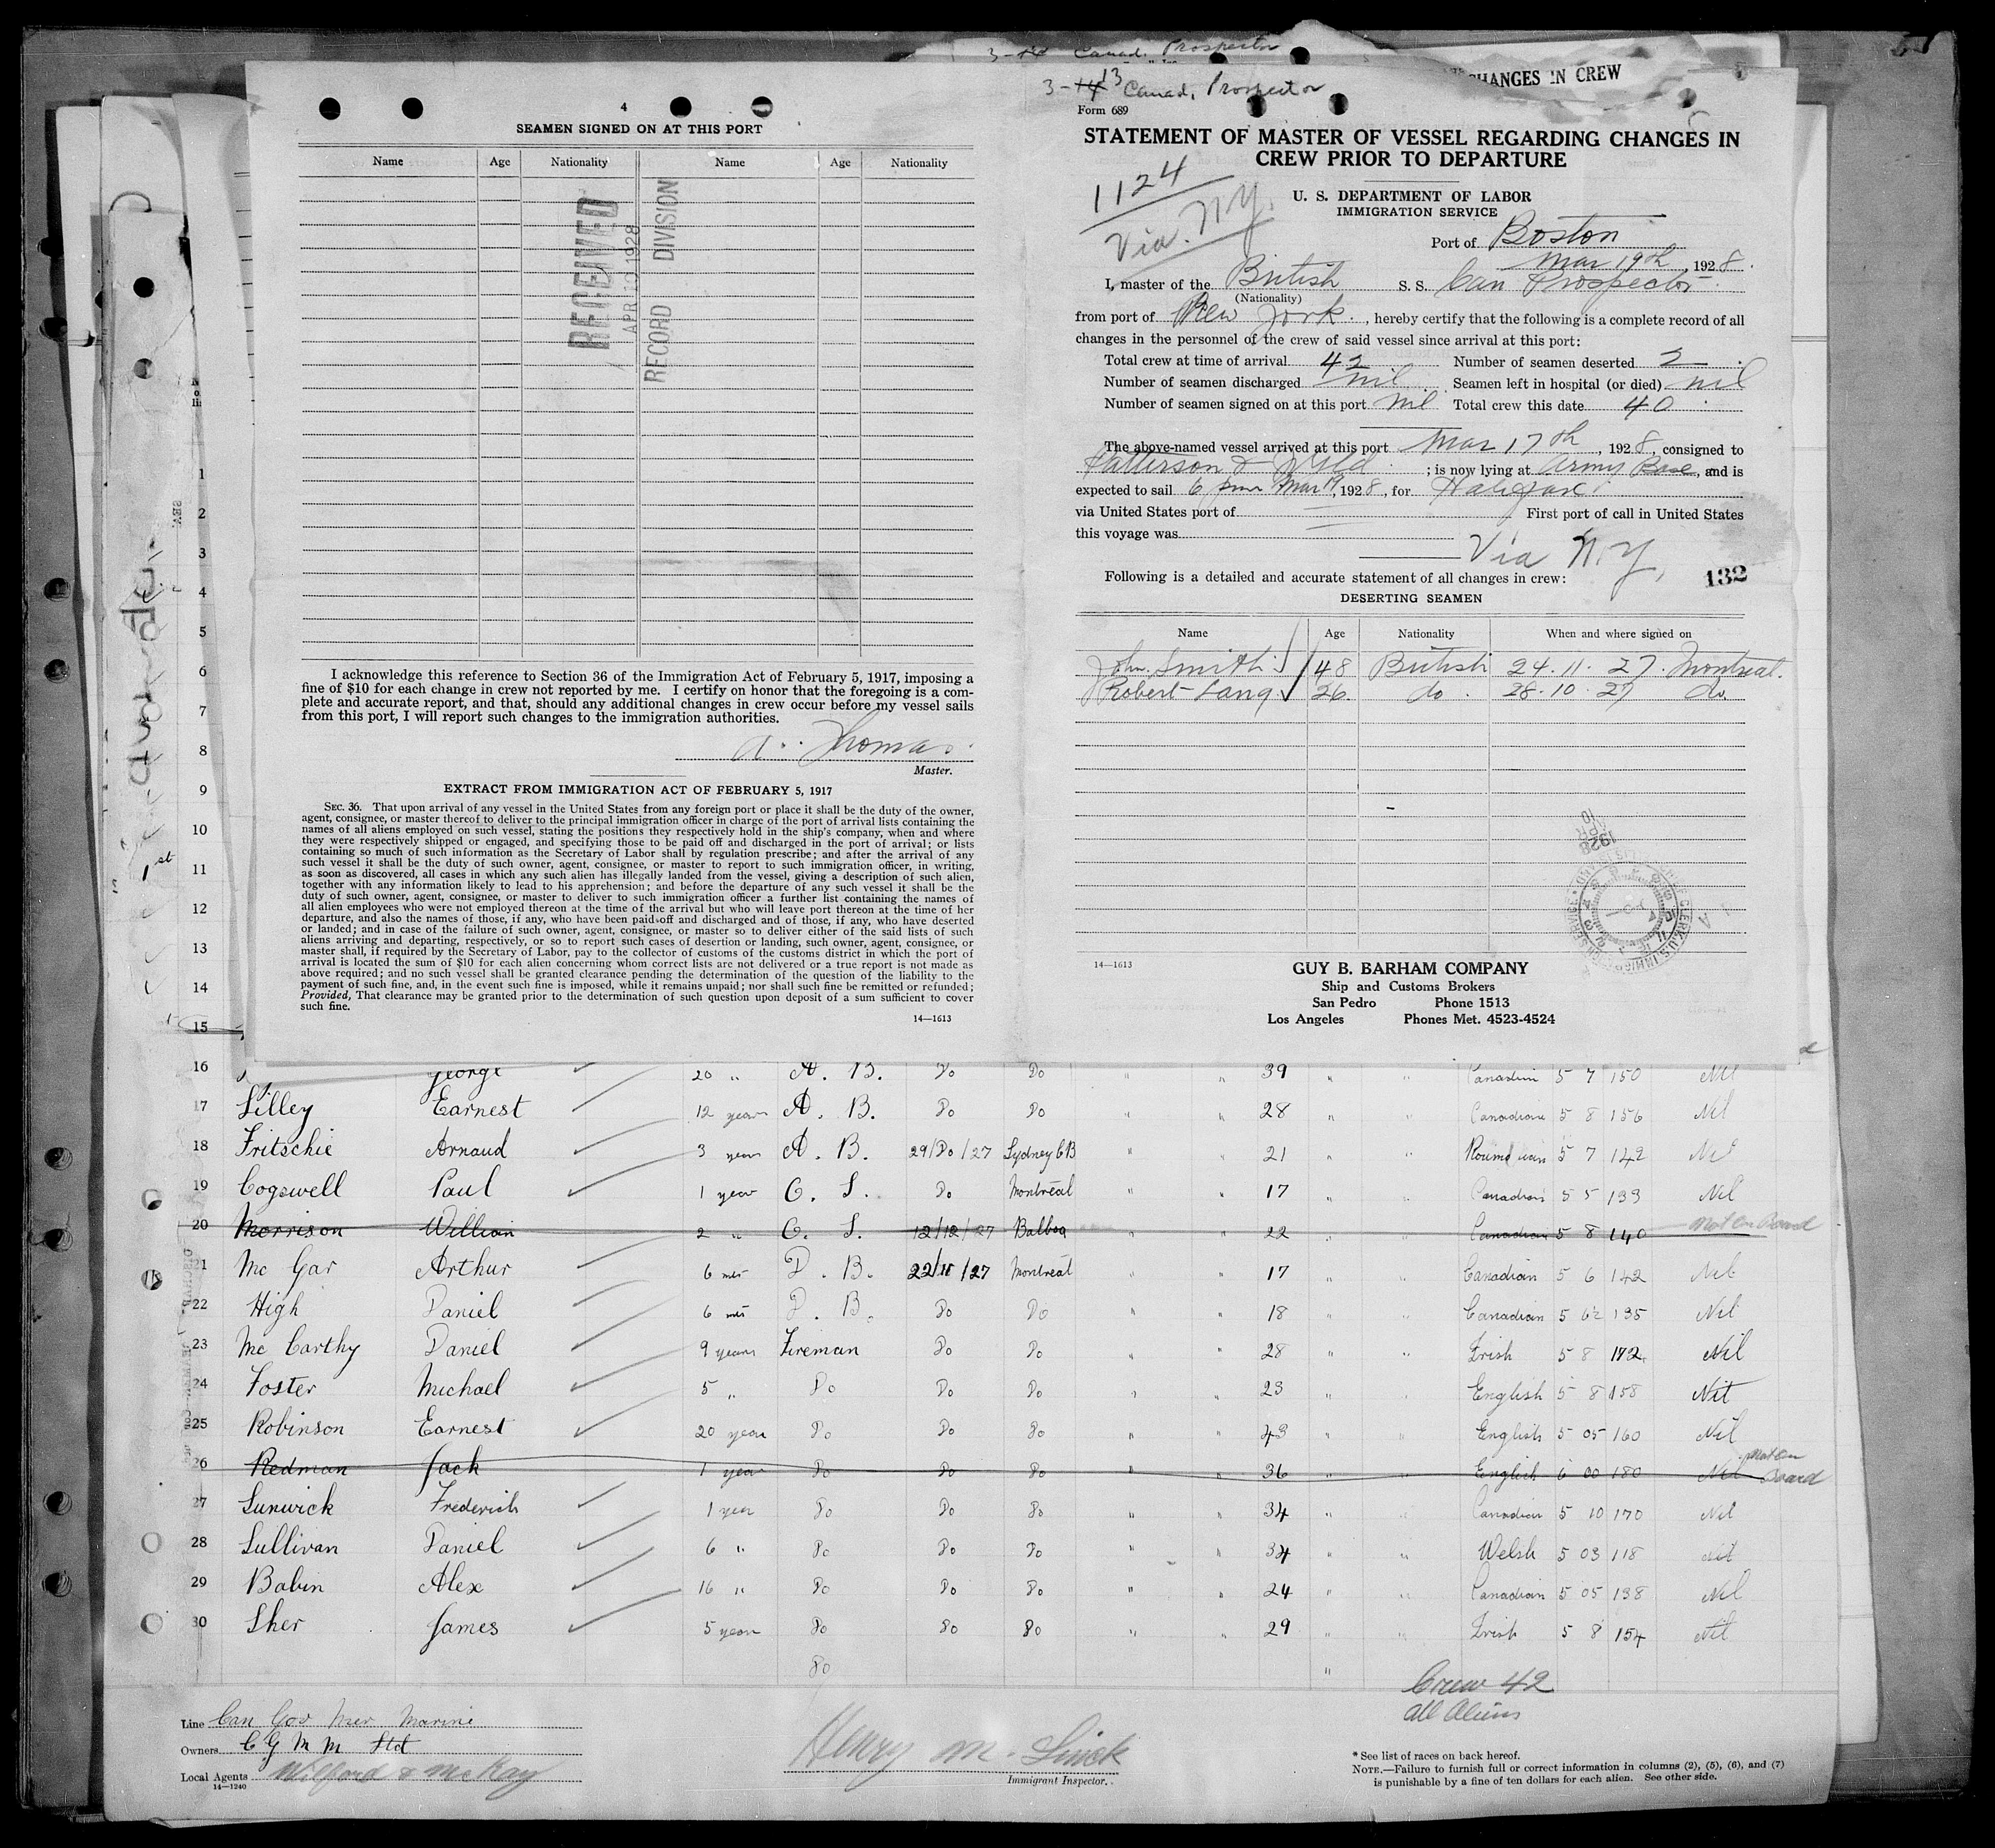 3-14 Canad. Prospector
CHANGES IN CREW
4
SEAMEN SIGNED ON AT THIS PORT
Name Age Nationality Name Age Nationality
RECEIVED
APR 10 1928
RECORD DIVISION
I acknowledge this reference to Section 36 of the Immigration Act of February 5, 1917, imposing a
fine of $10 for each change in crew not reported by me. I certify on honor that the foregoing is a com-
plete and accurate report, and that, should any additional changes in crew occur before my vessel sails
from this port, I will report such changes to the immigration authorities.
Thomas
Master.
EXTRACT FROM IMMIGRATION ACT OF FEBRUARY 5, 1917
SEC. 36. That upon arrival of any vessel in the United States from any foreign port or place it shall be the duty of the owner,
agent, consignee, or master thereof to deliver to the principal immigration officer in charge of the port of arrival lists containing the
names of all aliens employed on such vessel, stating the positions they respectively hold in the ship's company, when and where
they were respectively shipped or engaged, and specifying those to be paid off and discharged in the port of arrival; or lists
containing so much of such information as the Secretary of Labor shall by regulation prescribe; and after the arrival of any
such vessel it shall be the duty of such owner, agent, consignee, or master to report to such immigration officer, in writing,
as soon as discovered, all cases in which any such alien has illegally landed from the vessel, giving a description of such alien,
together with any information likely to lead to his apprehension; and before the departure of any such vessel it shall be the
duty of such owner, agent, consignee, or master to deliver to such immigration officer a further list containing the names of
all alien employees who were not employed thereon at the time of the arrival but who will leave port thereon at the time of her
departure, and also the names of those, if any, who have been paid off and discharged and of those, if any, who have deserted
or landed; and in case of the failure of such owner, agent, consignee, or master so to deliver either of the said lists of such
aliens arriving and departing, respectively, or so to report such cases of desertion or landing, such owner, agent, consignee, or
master shall, if required by the Secretary of Labor, pay to the collector of customs of the customs district in which the port of
arrival is located the sum of $10 for each alien concerning whom correct lists are not delivered or a true report is not made as
above required; and no such vessel shall be granted clearance pending the determination of the question of the liability to the
payment of such fine, and, in the event such fine is imposed, while it remains unpaid; nor shall such fine be remitted or refunded;
Provided, That clearance may be granted prior to the determination of such question upon deposit of a sum sufficient to cover
such fine.
14—1613
3-14 13 Canad. Prospector
Form 689
STATEMENT OF MASTER OF VESSEL REGARDING CHANGES IN
CREW PRIOR TO DEPARTURE
1124
Via. N.Y.
U. S. DEPARTMENT OF LABOR
IMMIGRATION SERVICE
Port of Boston
Mar 19th, 1928.
I, master of the British S. S. Can Prospector
(Nationality)
from port of New York, hereby certify that the following is a complete record of all
changes in the personnel of the crew of said vessel since arrival at this port:
Total crew at time of arrival 42 Number of seamen deserted 2
Number of seamen discharged nil Seamen left in hospital (or died) nil
Number of seamen signed on at this port nil Total crew this date 40
The above-named vessel arrived at this port Mar 17th, 1928, consigned to
Patterson & Wyld; is now lying at Army Base, and is
expected to sail 6 pm Mar 19, 1928, for Halifax
via United States port of First port of call in United States
this voyage was
Via N.Y,
132
Following is a detailed and accurate statement of all changes in crew:
DESERTING SEAMEN
Name Age Nationality When and where signed on
John Smith 48 British 24.11.27. Montreal.
Robert Lang 26. do. 28.10.27 do.
APR 10 1928
14—1613
GUY B. BARHAM COMPANY
Ship and Customs Brokers
San Pedro Phone 1513
Los Angeles Phones Met. 4523-4524
1
2
3
4
5
6
7
8
9
10
11
12
13
14
15
16 George 20 " A. B. Do Do " " 39 " " Canadian 5 7 150 Nil
17 Lilley Earnest 12 years A. B. Do Do " " 28 " " Canadian 5 8 156 Nil
18 Fritschie Arnaud 3 years A. B. 29/Do/27 Sydney CB " " 21 " " Roumanian 5 7 142 Nil
19 Cogswell Paul 1 year O. S. Do Montreal " " 17 " " Canadian 5 5 133 Nil
20 Morrison William 2 " O. S. 12/12/27 Balboa " " 22 " " Canadian 5 8 140 Not On Board
21 Mc Gar Arthur 6 mts D. B. 22/11/27 Montreal " " 17 " " Canadian 5 6 142 Nil
22 High Daniel 6 mts D. B. Do Do " " 18 " " Canadian 5 6½ 135 Nil
23 Mc Carthy Daniel 9 years Fireman Do Do " " 28 " " Irish 5 8 172 Nil
24 Foster Michael 5 " Do Do Do " " 23 " " English 5 8 158 Nil
25 Robinson Earnest 20 year Do Do Do " " 43 " " English 5 05 160 Nil
26 Redman Jack 1 year Do Do Do " " 36 " " English 6 00 180 Nil Not On Board
27 Lunwick Frederich 1 year Do Do Do " " 34 " " Canadian 5 10 170 Nil
28 Sullivan Daniel 6 " Do Do Do " " 34 " " Welsh 5 03 118 Nil
29 Babin Alex 16 " Do Do Do " " 24 " " Canadian 5 05 138 Nil
30 Sher James 5 year Do Do Do " " 29 " " Irish 5 8 154 Nil
Do "
Crew 42
All Aliens
Line Can Gov Mer Marine
Owners C G M M Ltd
Local Agents Wilford & McKay
14—1240
Henry M. Linck
Immigrant Inspector.
* See list of races on back hereof.
NOTE.—Failure to furnish full or correct information in columns (2), (5), (6), and (7)
is punishable by a fine of ten dollars for each alien. See other side.